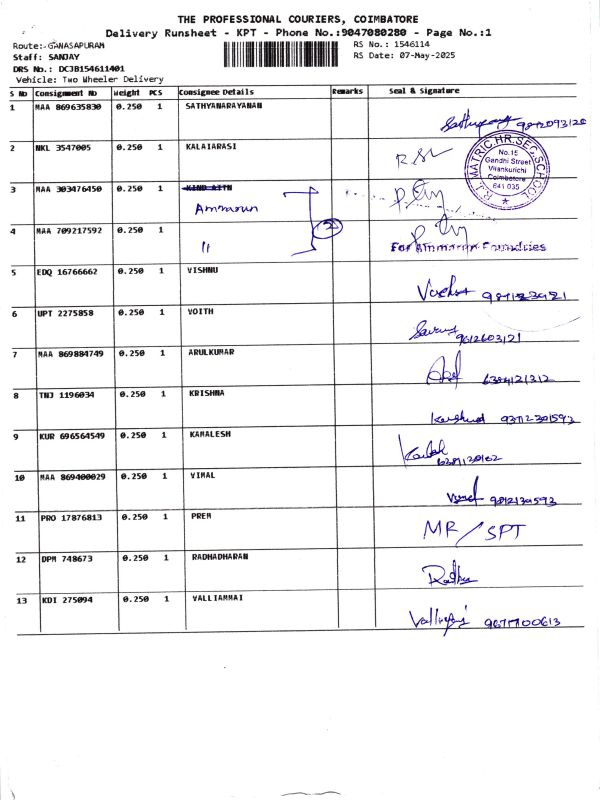 THE PROFESSIONAL COURIERS, COIMBATORE
Delivery Runsheet - KPT - Phone No.:9047080280 - Page No.:1
Route:-GANASAPURAM
RS No.: 1546114
Staff: SANJAY
RS Date: 07-May-2025
DRS No.: DCJB154611401
Vehicle: Two Wheeler Delivery
S No Consignment No Weight PCS Consignee Details Remarks Seal & Signature
1 MAA 869635830 0.250 1 SATHYANARAYANAN
2 NKL 3547005 0.250 1 KALAIARASI
R.J. MATRIC.HR.SEC.SCHOOL
No.15
Gandhi Street
Vilankurichi
Coimbatore
641 035
3 MAA 303476450 0.250 1 KIND ATTN
Ammarun
2
4 MAA 709217592 0.250 1
"
For Ammarun Foundries
5 EDQ 16766662 0.250 1 VISHNU
6 UPT 2275858 0.250 1 VOITH
7 MAA 869884749 0.250 1 ARULKUMAR
6384121312
8 TNJ 1196034 0.250 1 KRISHNA
9 KUR 696564549 0.250 1 KAMALESH
10 MAA 869400029 0.250 1 VIMAL
11 PRO 17876813 0.250 1 PREM
MR/SPT
12 DPM 748673 0.250 1 RADHADHARAN
Radha
13 KDI 275094 0.250 1 VALLIAMMAI